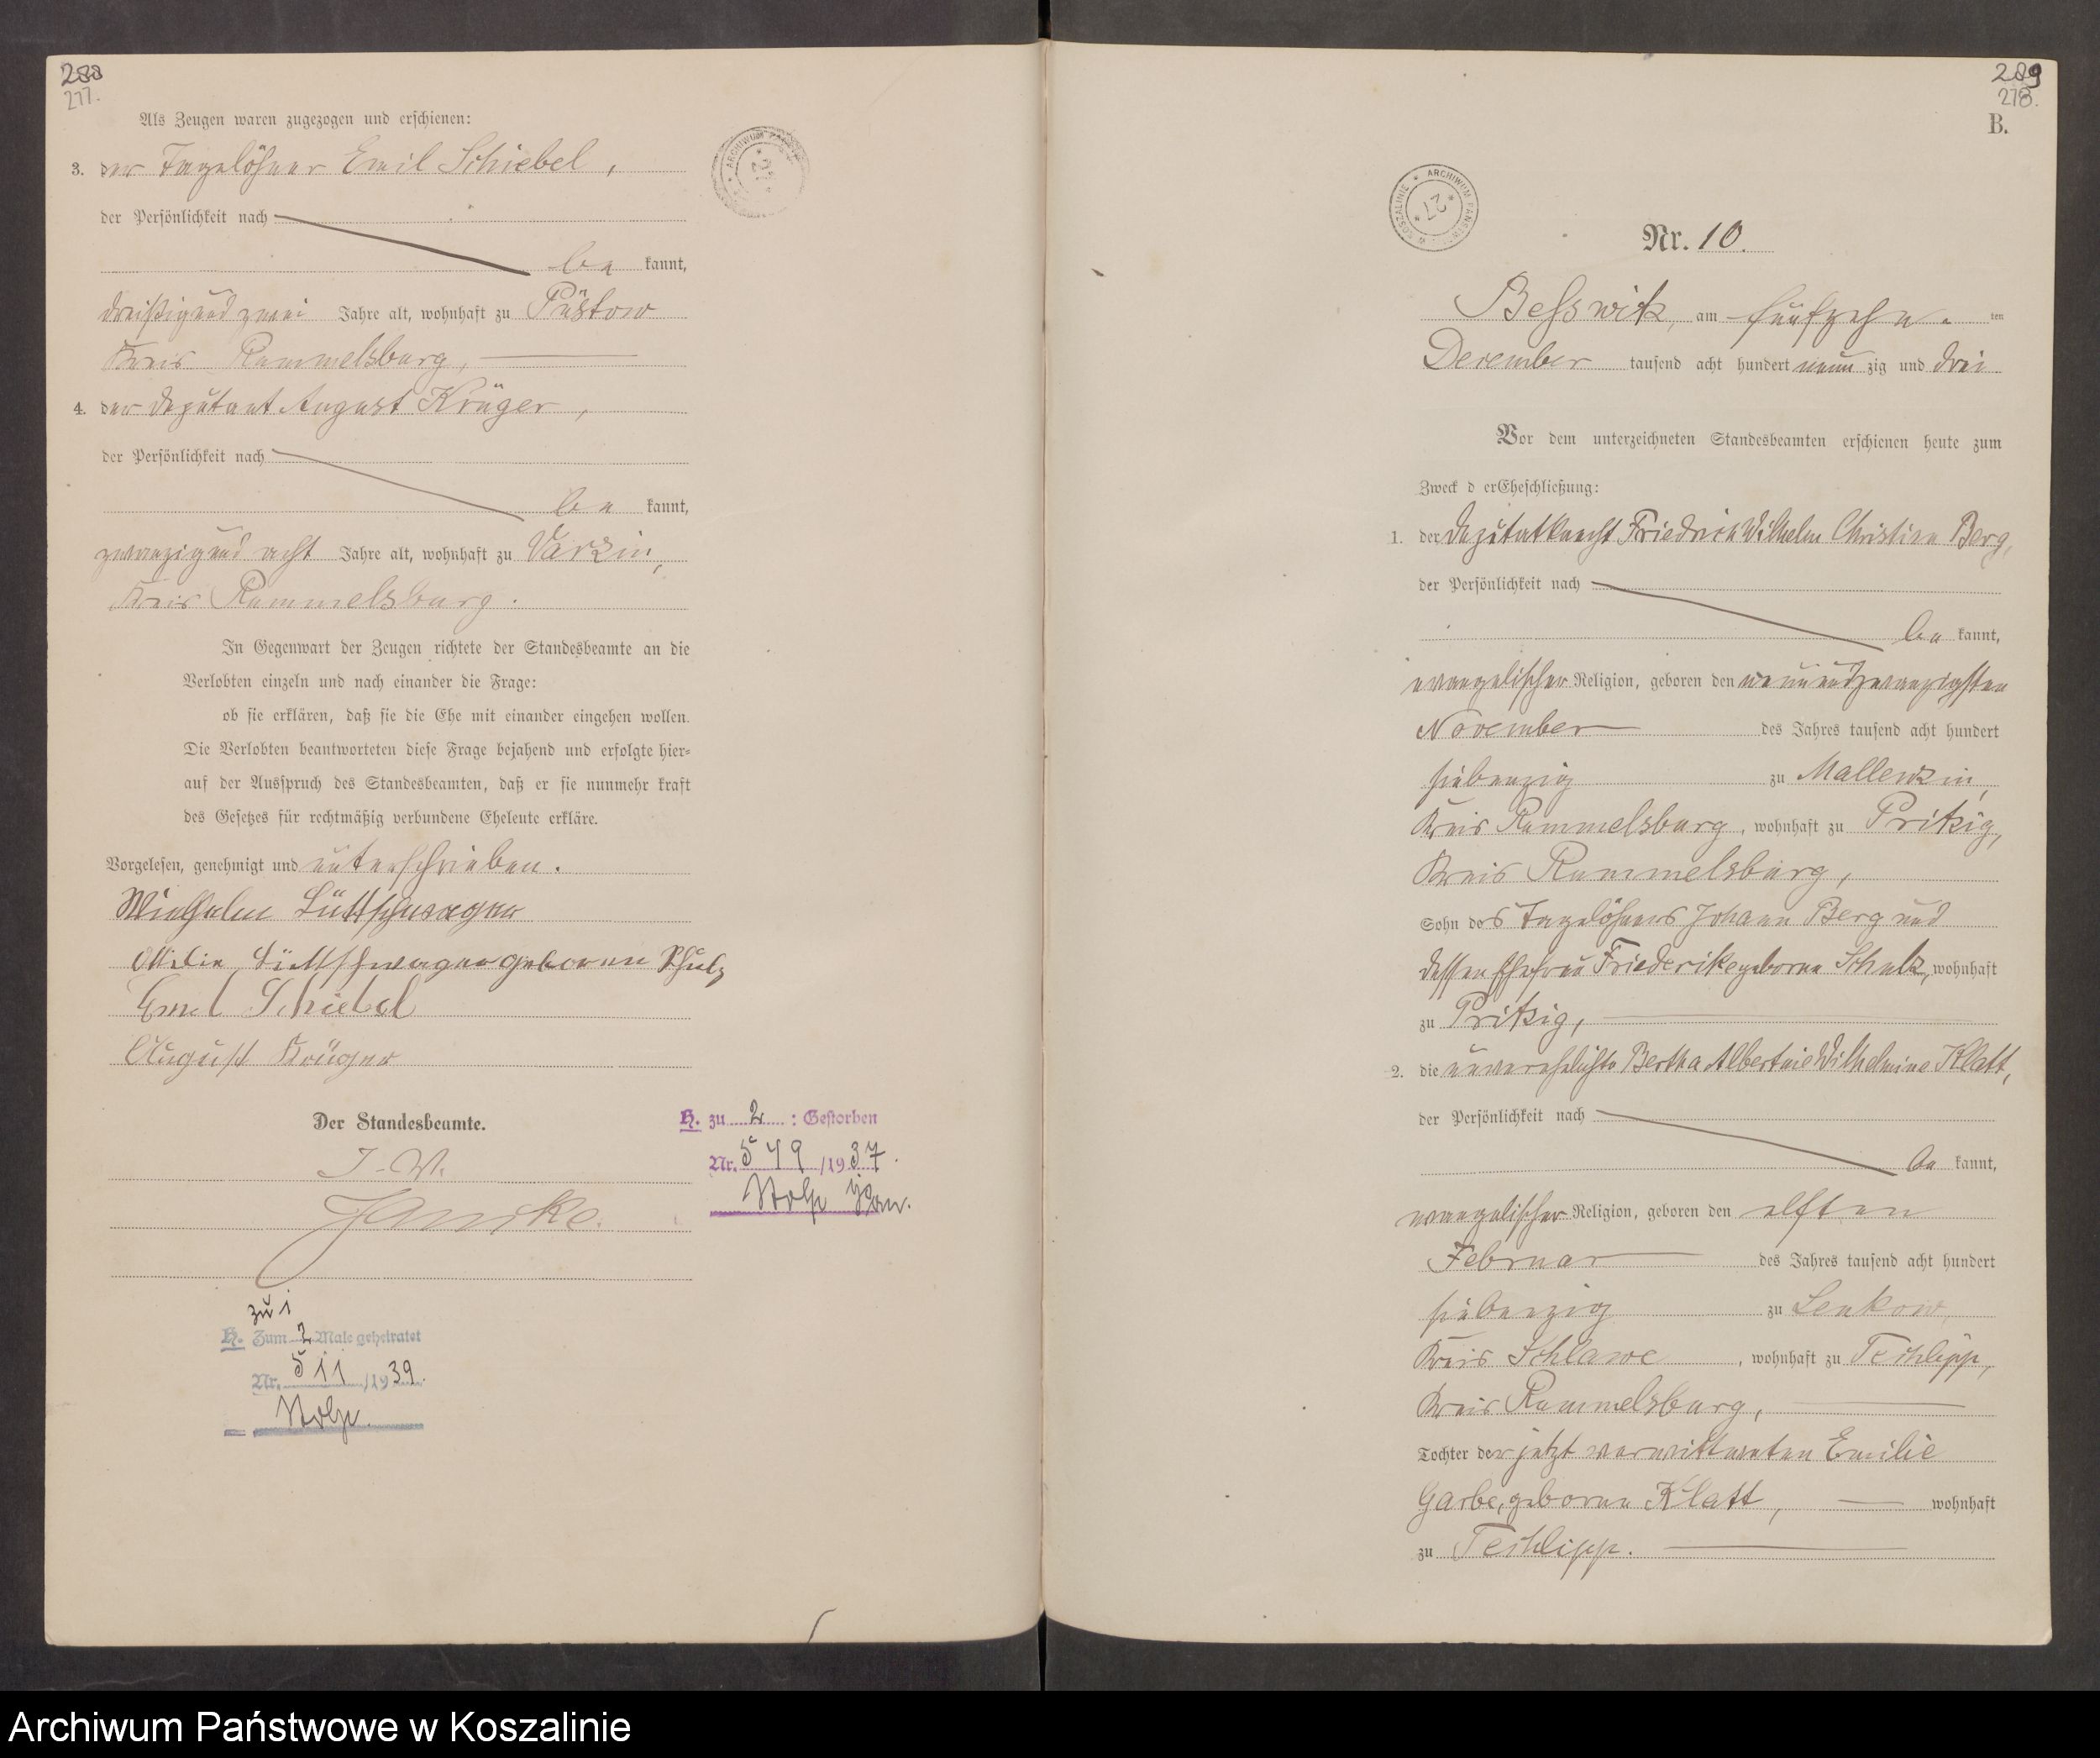 288
277.
Als Zeugen waren zugezogen und erschienen:
3. der Tagelöhner Emil Schiebel,
der Persönlichkeit nach
be kannt,
dreißig und zwei Jahre alt, wohnhaft zu Püstow
Kreis Rummelsburg,
4. der Deputant August Krüger,
der Persönlichkeit nach
be kannt,
zwanzig und acht Jahre alt, wohnhaft zu Varzin,
Kreis Rummelsburg.
In Gegenwart der Zeugen richtete der Standesbeamte an die
Verlobten einzeln und nach einander die Frage:
ob sie erklären, daß sie die Ehe mit einander eingehen wollen.
Die Verlobten beantworteten diese Frage bejahend und erfolgte hier-
auf der Ausspruch des Standesbeamten, daß er sie nunmehr kraft
des Gesetzes für rechtmäßig verbundene Eheleute erkläre.
Vorgelesen, genehmigt und unterschrieben.
Wielhelm Lüttschwager
Lüttschwager geborene Schulz
Emil Schiebel
August Krüger
Der Standesbeamte.
I. V.
H. zu 2 : Gestorben
Nr. 549 /1937.
Stolp
zu 1
H. Zum 2 Male geheiratet
Nr. 511 /1939.
Stolp.
ARCHIWUM
289
278.
B.
ARCHIWUM PAŃSTWOWE W KOSZALINIE
27
Nr. 10.
Besswitz, am fünfzehn ten
Dezember tausend acht hundert neun zig und drei
Vor dem unterzeichneten Standesbeamten erschienen heute zum
Zweck d er Eheschließung:
1. der Deputatknecht Friedrich Wilhelm Christian Berg,
der Persönlichkeit nach
be kannt,
evangelischer Religion, geboren den neunundzwanzigsten
November des Jahres tausend acht hundert
siebenzig zu Mallenzin,
Kreis Rummelsburg, wohnhaft zu Pritzig,
Kreis Rummelsburg,
Sohn des Tagelöhners Johann Berg und
dessen Ehefrau Friederike geborne Schulz, wohnhaft
zu Pritzig,
2. die unverehelichte Bertha Albertine Wilhelmine Klatt,
der Persönlichkeit nach
be kannt,
evangelischer Religion, geboren den elften
Februar des Jahres tausend acht hundert
siebenzig zu
Kreis Schlawe, wohnhaft zu Techlipp,
Kreis Rummelsburg,
Tochter der jetzt verwittweten Emilie
Garbe, geborne Klatt, wohnhaft
zu Techlipp.
Archiwum Państwowe w Koszalinie